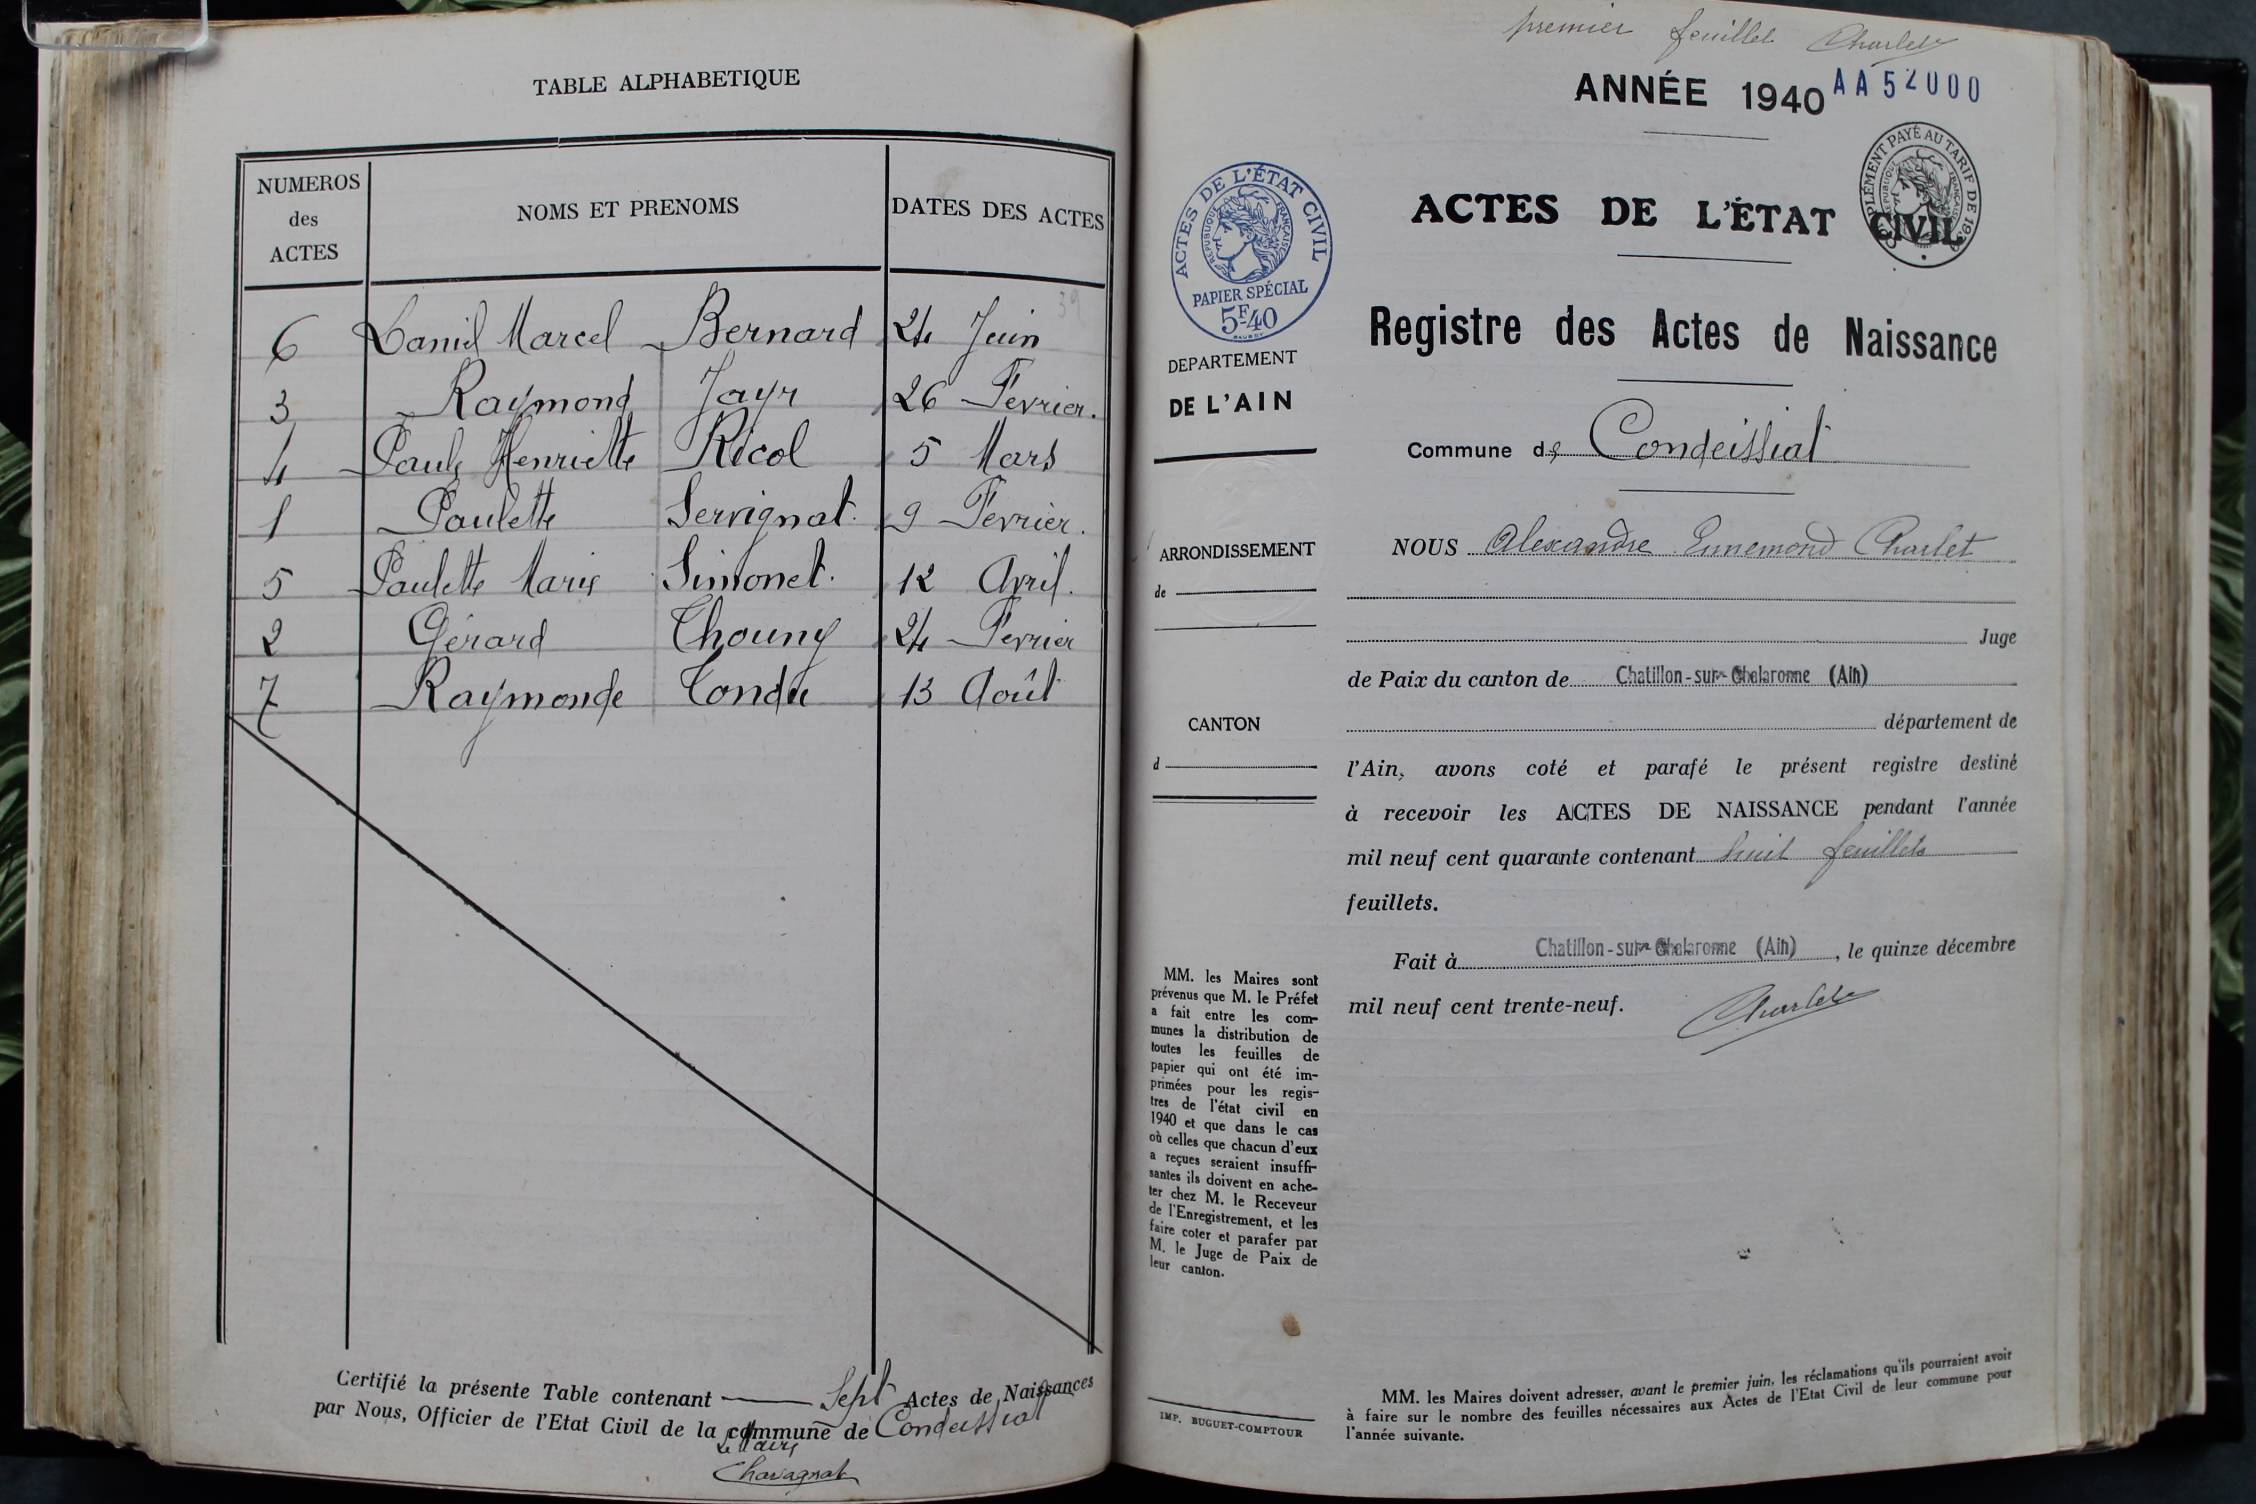 TABLE ALPHABETIQUE
NUMEROS des ACTES | NOMS ET PRENOMS | DATES DES ACTES
39
6 Daniel Marcel Bernard 24 Juin
3 Raymond Jayr 26 Fevrier.
4 Paule Henriette Ricol 5 Mars
1 Paulette Servignat. 9 Fevrier.
5 Paulette Marie Simonet. 12 Avril.
2 Gérard Thouny 24 Fevrier
7 Raymonde Tondu 13 Août
Certifié la présente Table contenant Sept Actes de Naissances
par Nous, Officier de l'Etat Civil de la commune de Condeissiat
Le Maire
Chavagnat
premier feuillet Charlet
ANNÉE 1940 AA52000
COMPLÉMENT PAYÉ AU TARIF DE 1939
RÉPUBLIQUE FRANÇAISE
ACTES DE L'ÉTAT CIVIL
RÉPUBLIQUE FRANÇAISE
PAPIER SPÉCIAL
5F40
ACTES DE L'ÉTAT CIVIL
Registre des Actes de Naissance
DEPARTEMENT
DE L'AIN
Commune de Condeissiat
ARRONDISSEMENT
de
CANTON
d
NOUS Alexandre Ennemond Charlet
Juge
de Paix du canton de Chatillon-sur-Chalaronne (Ain)
département de
l'Ain, avons coté et parafé le présent registre destiné
à recevoir les ACTES DE NAISSANCE pendant l'année
mil neuf cent quarante contenant huit feuillets
feuillets.
Fait à Chatillon-sur-Chalaronne (Ain), le quinze décembre
mil neuf cent trente-neuf.
Charlet
MM. les Maires sont
prévenus que M. le Préfet
a fait entre les com-
munes la distribution de
toutes les feuilles de
papier qui ont été im-
primées pour les regis-
tres de l'état civil en
1940 et que dans le cas
où celles que chacun d'eux
a reçues seraient insuffi-
santes ils doivent en ache-
ter chez M. le Receveur
de l'Enregistrement, et les
faire coter et parafer par
M. le Juge de Paix de
leur canton.
IMP. BUGUET-COMPTOUR
MM. les Maires doivent adresser, avant le premier juin, les réclamations qu'ils pourraient avoir
à faire sur le nombre des feuilles nécessaires aux Actes de l'Etat Civil de leur commune pour
l'année suivante.